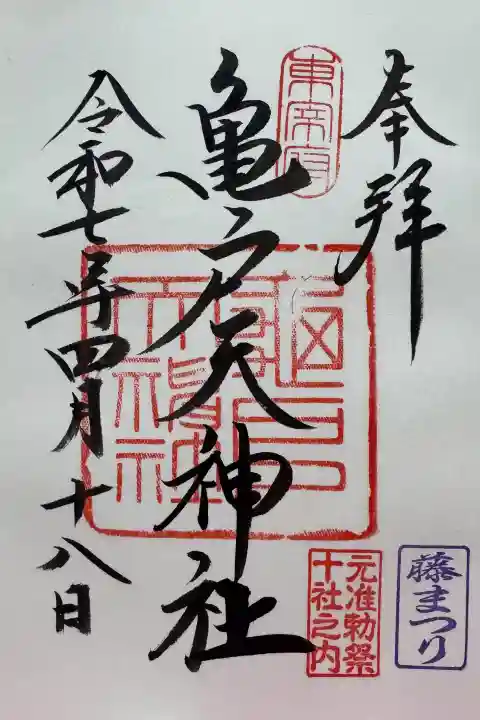 奉拝
東宰府
亀戸天神社
龜戸天神社
令和七年四月十八日
元准勅祭
十社之内
藤まつり